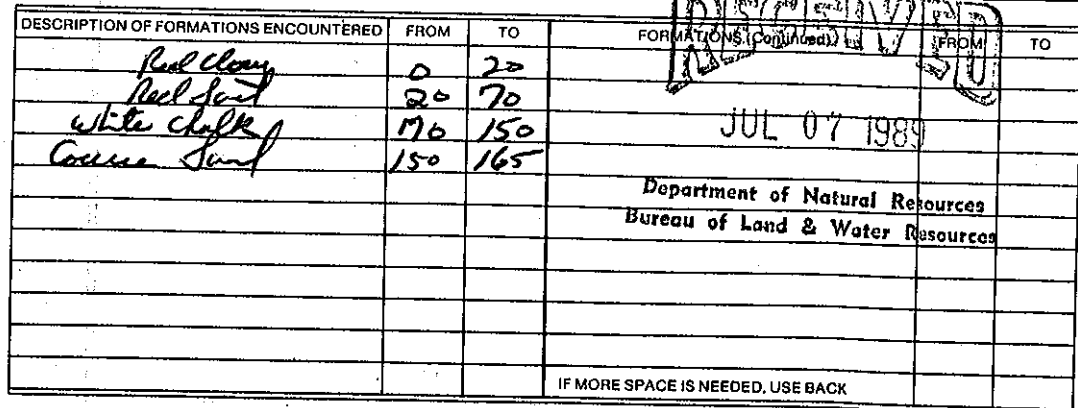 DESCRIPTION OF FORMATIONS ENCOUNTERED FROM TO FORMATIONS (Continued) FROM TO
RECEIVED
Red Clay 0 20
Red Sand 20 70
White Chalk 70 150
Course Sand 150 165
JUL 07 1989
Department of Natural Resources
Bureau of Land & Water Resources
IF MORE SPACE IS NEEDED, USE BACK